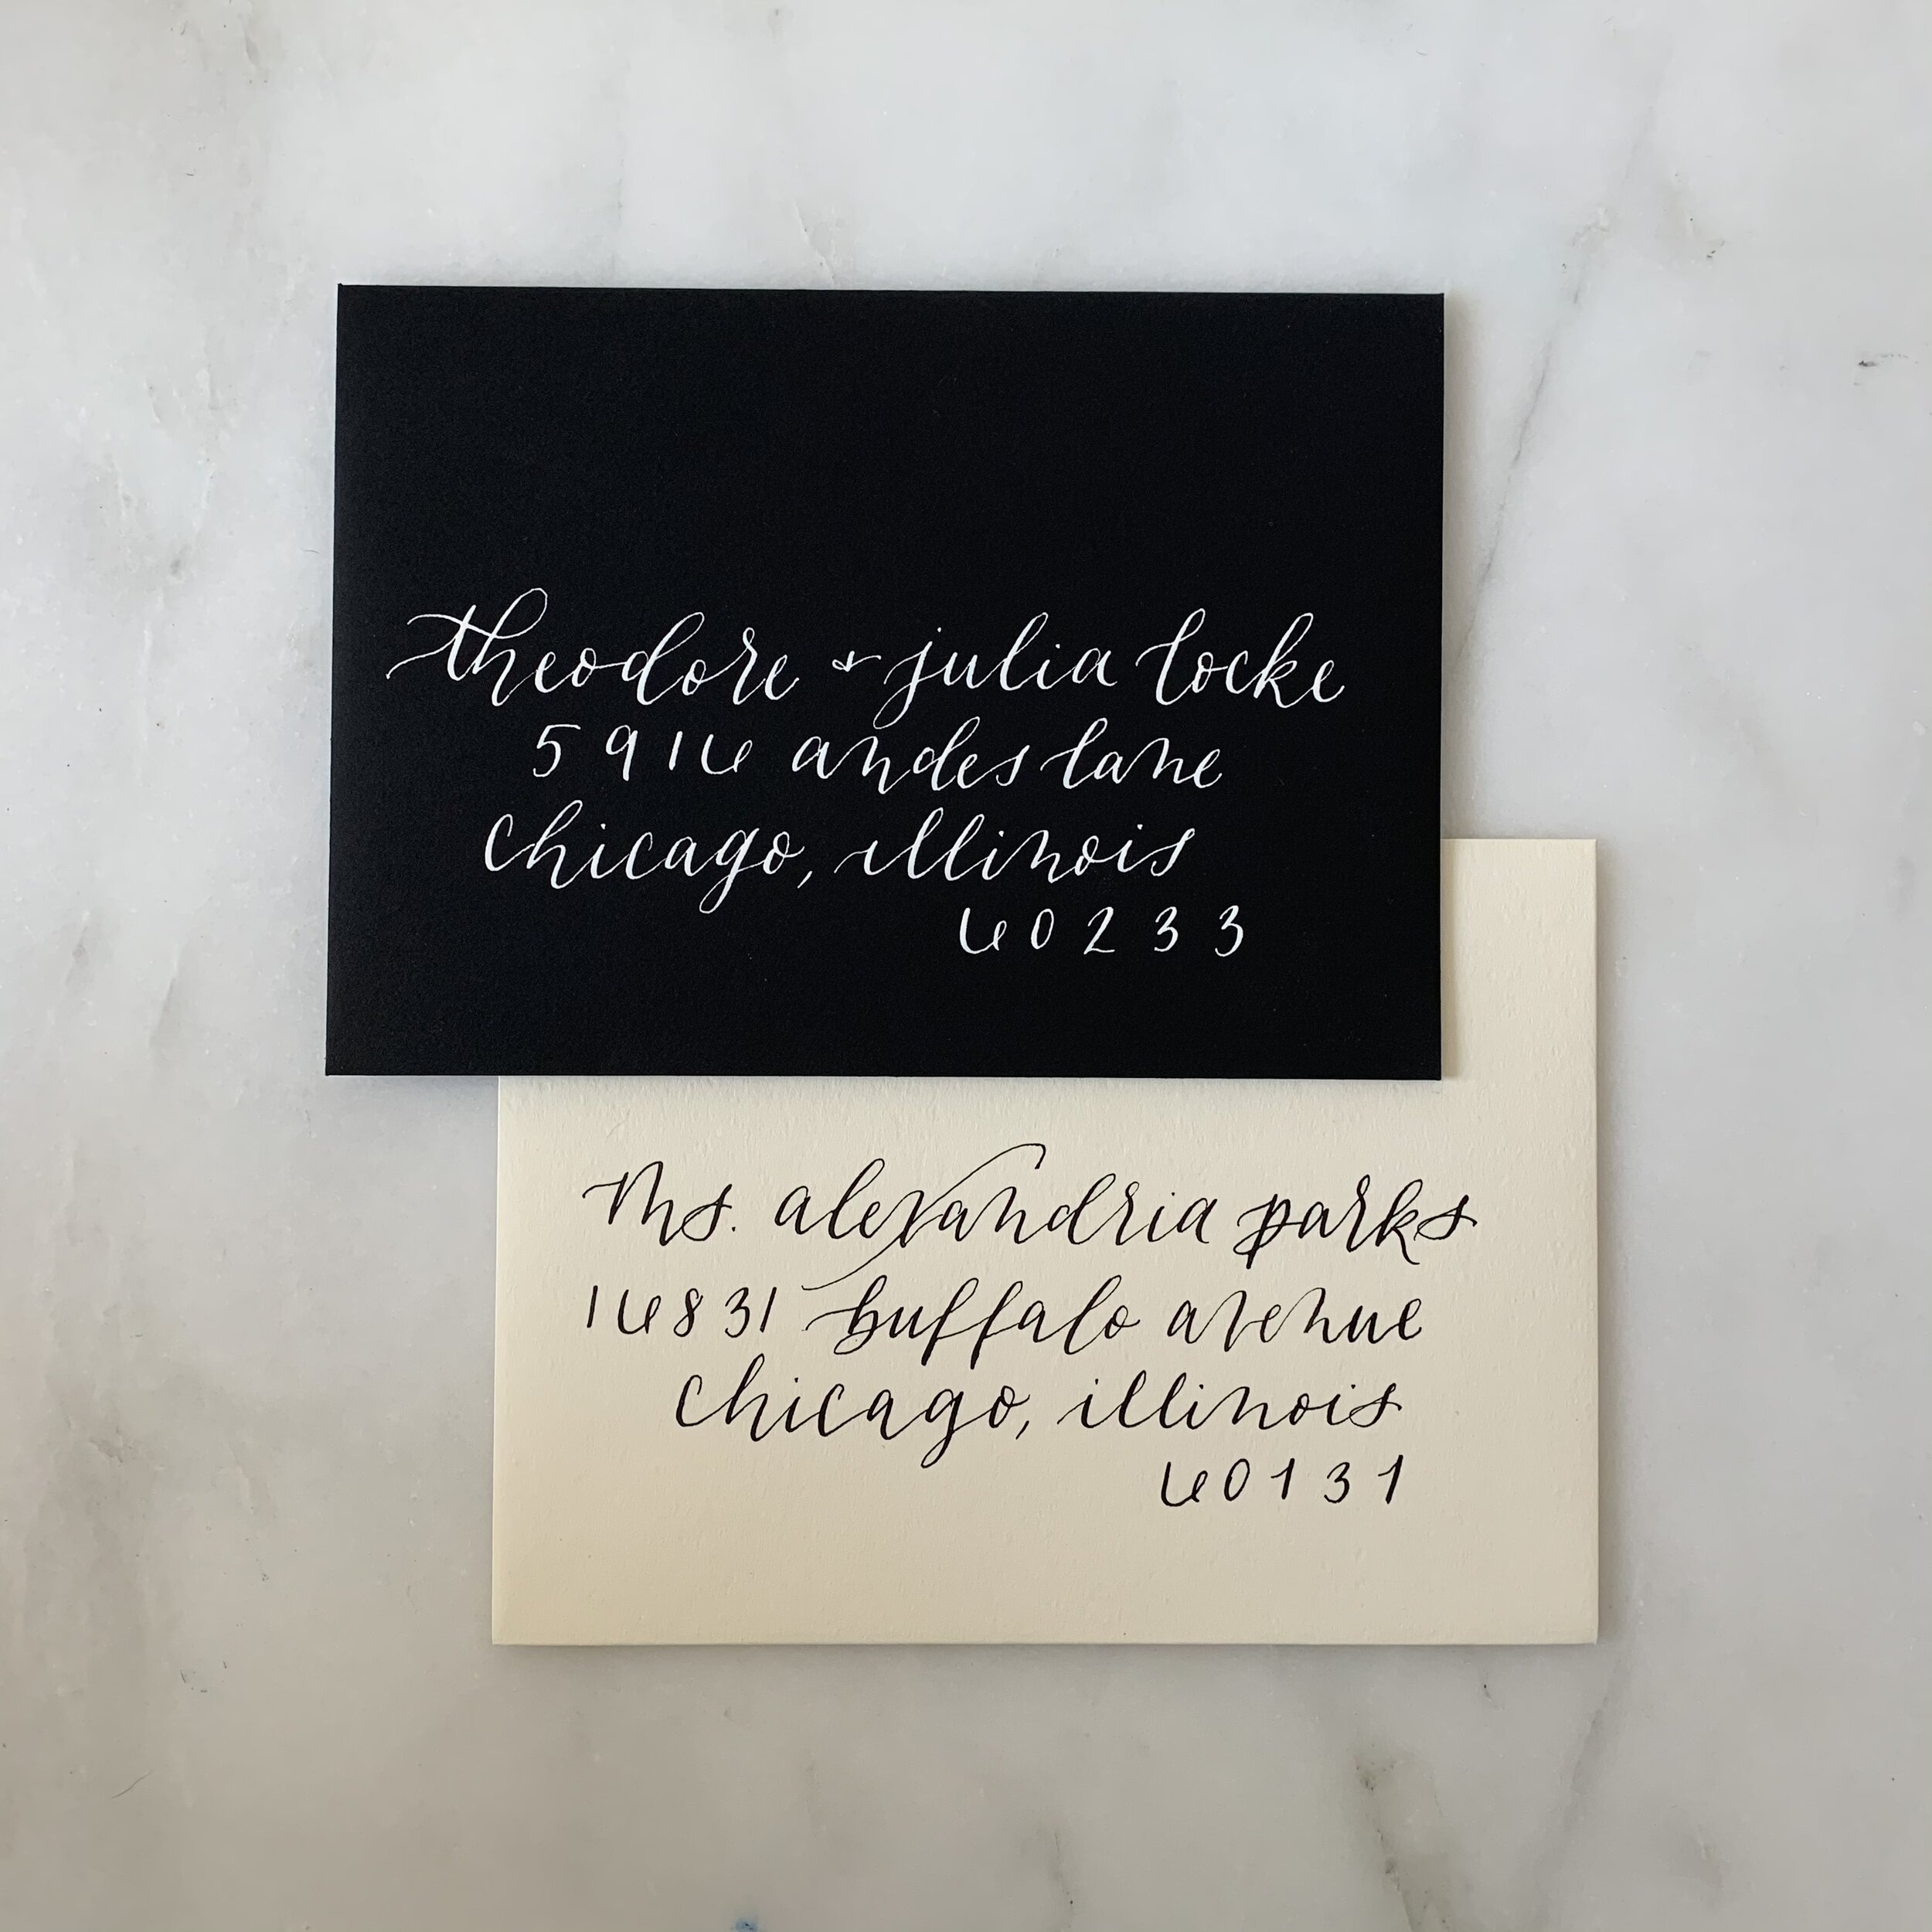 theodore + julia locke
5916 andes lane
chicago, illinois
60233
ms. alexandria parks
16831 buffalo avenue
chicago, illinois
60131